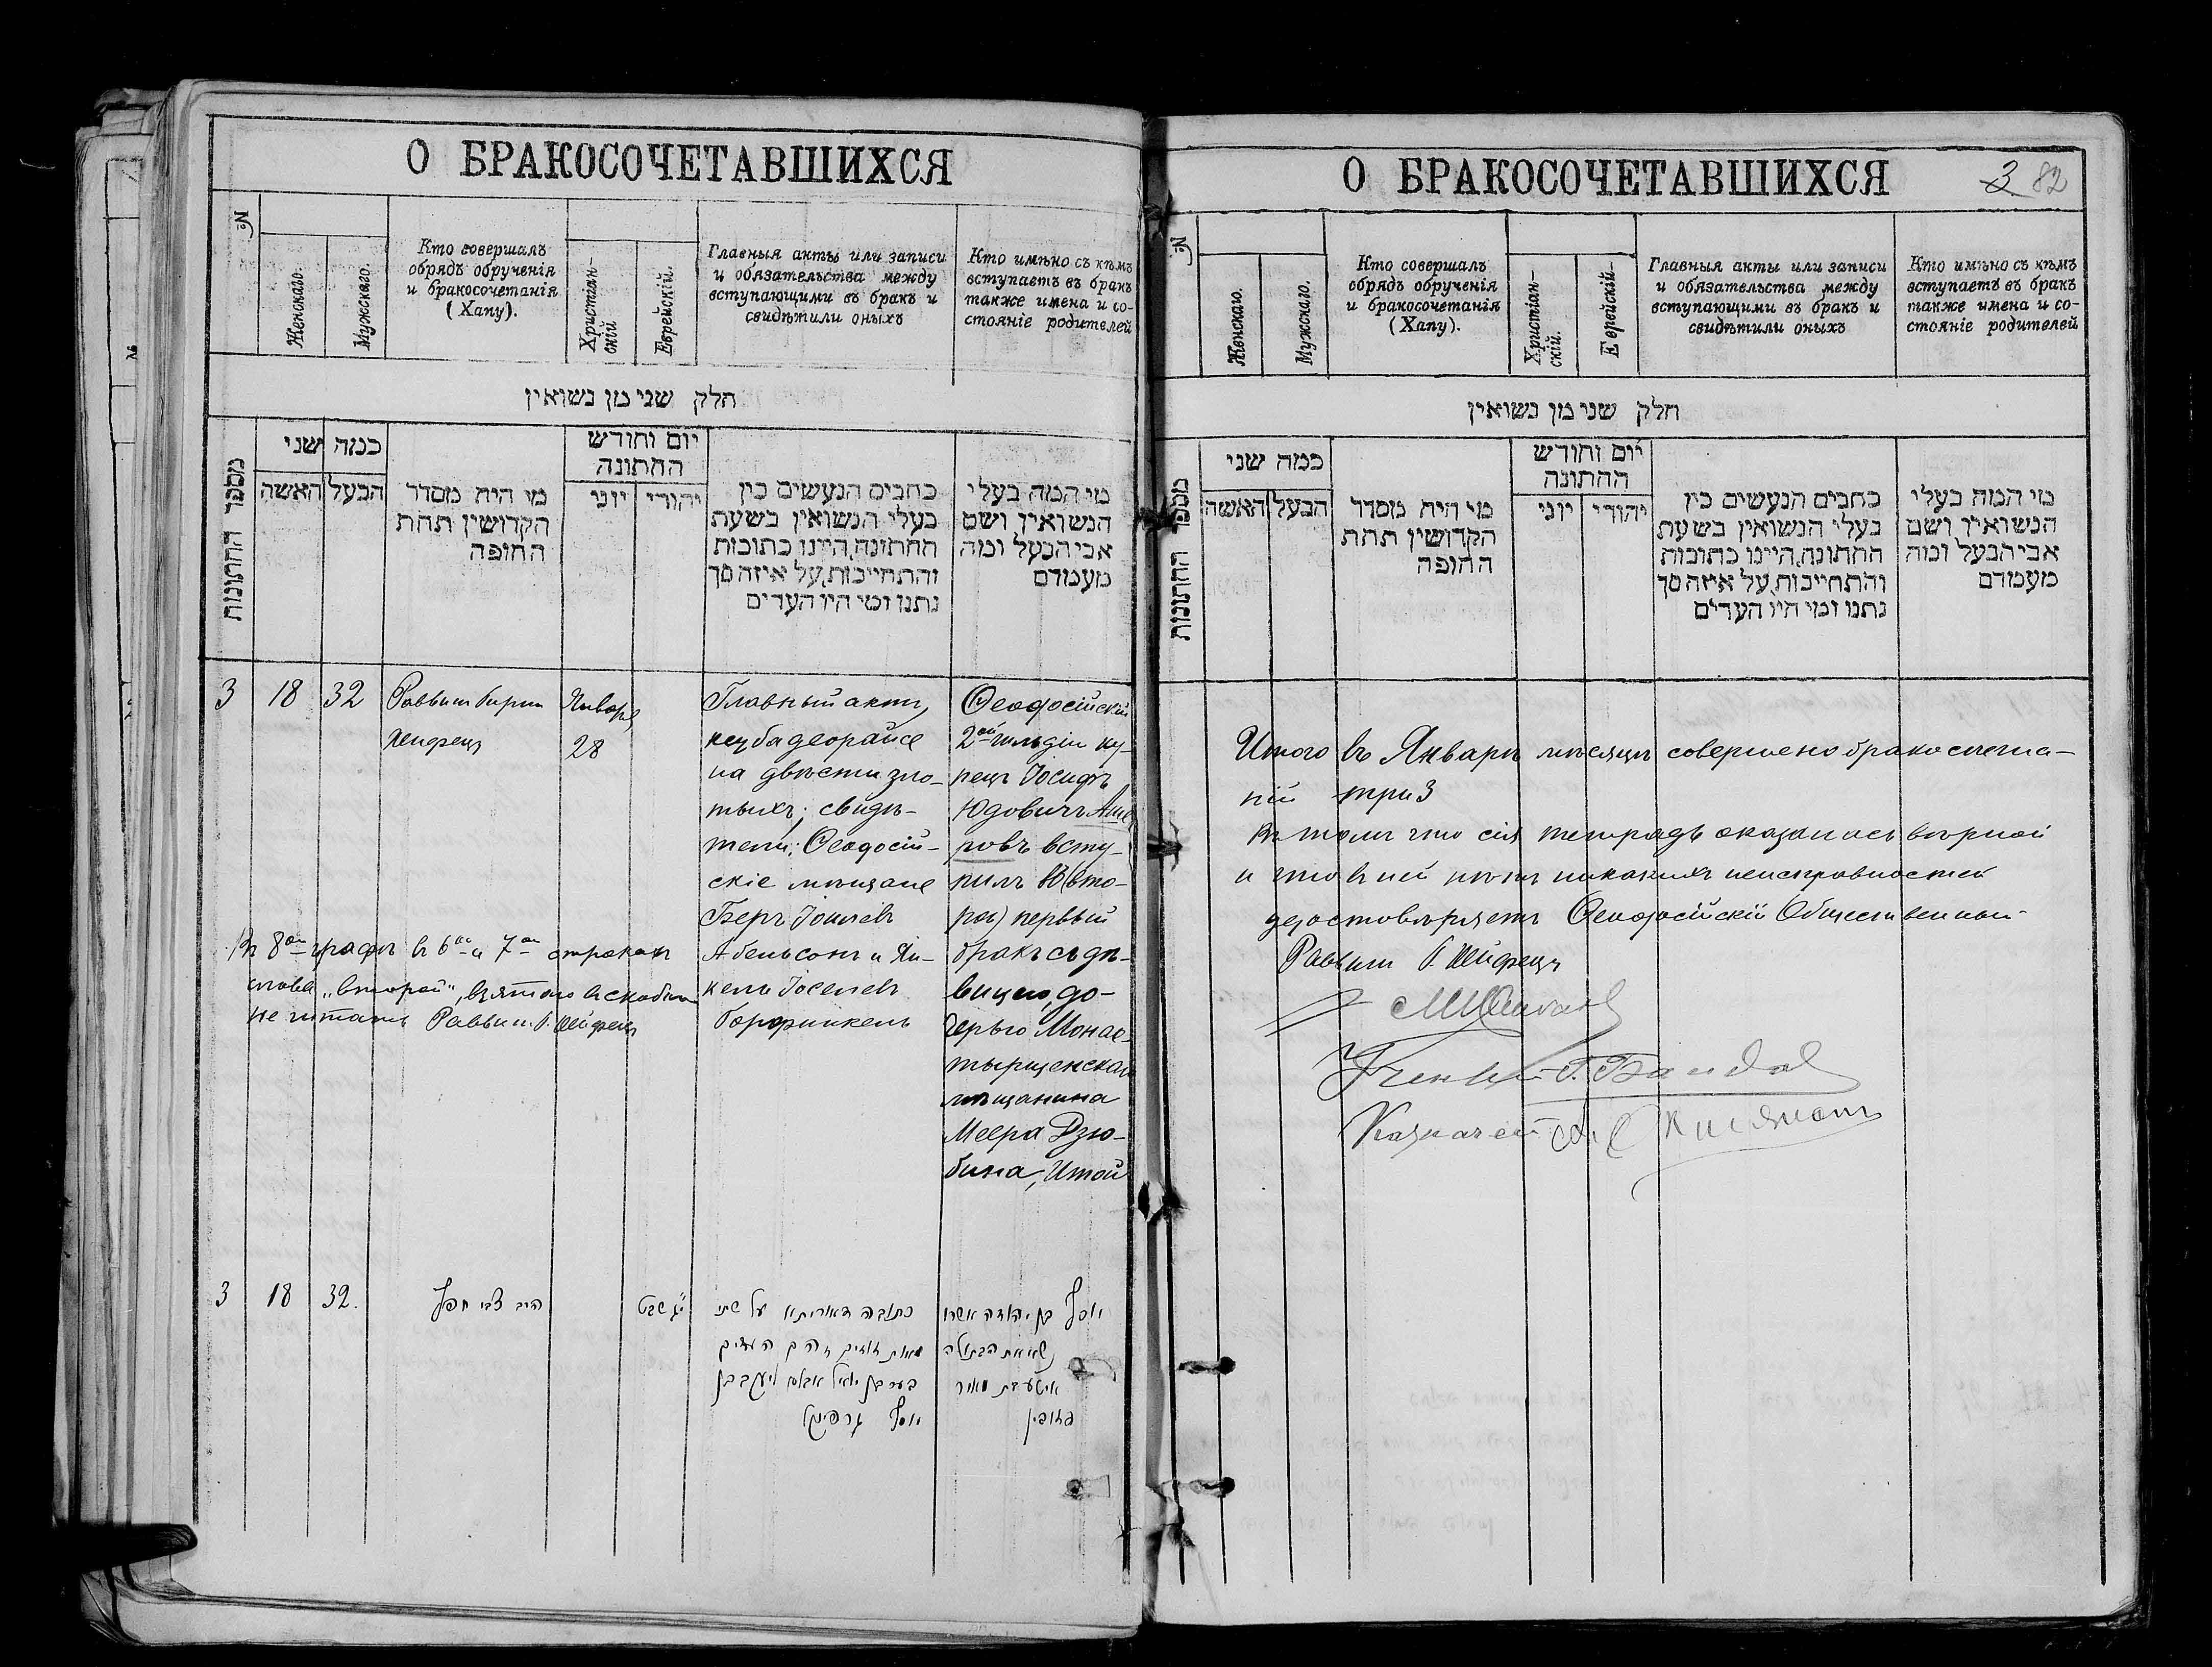 О БРАКОСОЧЕТАВШИХСЯ
№
Женскаго.
Мужскаго.
Кто совершалъ
обрядъ обрученія
и бракосочетанія
(Хапу).
Христіан-
скій
Еврейскій.
Главныя акты или записи
и обязательства между
вступающими въ бракъ и
свидѣтили оныхъ
Кто имѣно съ кѣмъ
вступаетъ въ бракъ
также имена и со-
стояніе родителей
חלק שני מן נשואין
מספר החתונות
כמה שני
האשה
הבעל
מי היה מסדר
הקדושין תחת
החופה
יום וחודש
החתונה
יוני
יהודי
כתבים הנעשים בין
בעלי הנשואין בשעת
החתונה, היינו כתובות
והתחייבות, על איזה סך
נתנו ומי היו העדים
מי המה בעלי
הנשואין ושם
אבי הבעל ומה
מעמדם
3
18
32
Раввинъ Гирш
Хейфецъ
Январѧ
28
Главный актъ,
кецуба деорайсе
на двѣсти зло-
тыхъ; свидѣ-
тели: Ѳеодосій-
скіе мѣщане
Беръ Іоилевъ
Абельсонъ и Ян-
кель Іоселевъ
Гарфинкель
Ѳеодосійскій
2ой гильдіи ку-
пецъ Іосифъ
Юдовичъ Аше-
ровъ всту-
пилъ во (вто-
рой) первый
бракъ съ дѣ-
вицею, до-
черью Монас-
тырщенскаго
мѣщанина
Меера Дзю-
бина, Итой
Въ 8ой графѣ въ 6ой и 7ой строкахъ
слова „второй", взятаго въ скобки
не читать Раввинъ Г. Хейфецъ
3
18
32.
הירש צבי חפץ
י"ג שבט
כתובה דאוריתא על שתי
מאות זוזים והם העדים
בער בן יואל אבלסון ויעקב בן
יוסף גרפינקל
יוסף בן יהודה אשרוב
נשא את הבתולה
איטע בת מאיר
דזובין
О БРАКОСОЧЕТАВШИХСЯ
3 82
№
Женскаго.
Мужскаго.
Кто совершалъ
обрядъ обрученія
и бракосочетанія
(Хапу).
Христіан-
скій.
Еврейскій-
Главныя акты или записи
и обязательства между
вступающими въ бракъ и
свидѣтили оныхъ
Кто имѣно съ кѣмъ
вступаетъ въ бракъ
также имена и со-
стояніе родителей
חלק שני מן נשואין
מספר החתונות
כמה שני
האשה
הבעל
מי היה מסדר
הקדושין תחת
החופה
יום וחודש
החתונה
יוני
יהודי
כתבים הנעשים בין
בעלי הנשואין בשעת
החתונה, היינו כתובות
והתחייבות, על איזה סך
נתנו ומי היו העדים
מי המה בעלי
הנשואין ושם
אבי הבעל ומה
מעמדם
Итого въ Январѣ мѣсяцѣ совершено бракосочета-
ній три 3
Въ томъ что сія тетрадь оказалась вѣрной
и что въ ней нѣтъ никакихъ неисправностей
удостовѣряетъ Ѳеодосійскій Общественный
Раввинъ Г. Хейфецъ
Казначей